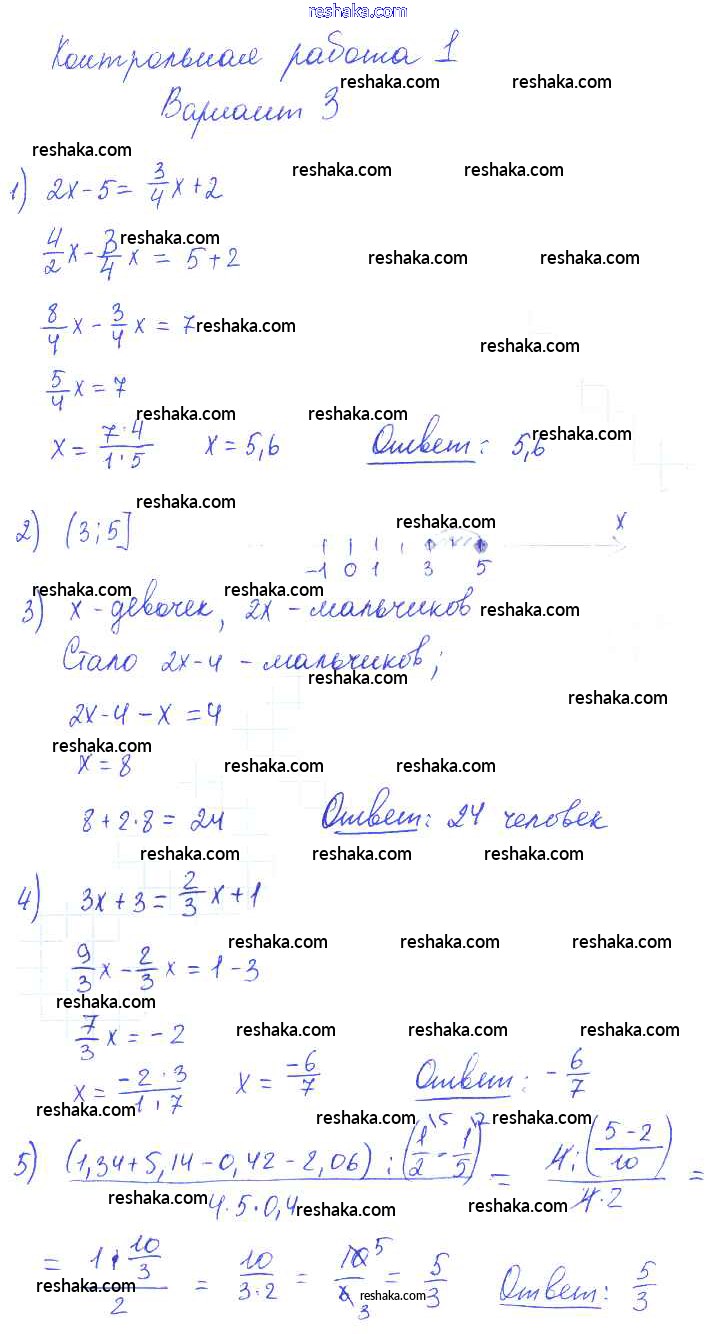 www.reshaka.com
Контрольная работа 1
reshaka.com reshaka.com
Вариант 3
reshaka.com reshaka.com reshaka.com
1) 2x - 5 = 3/4 x + 2
reshaka.com reshaka.com reshaka.com
4/2 x - 3/4 x = 5 + 2
8/4 x - 3/4 x = 7 reshaka.com
reshaka.com
5/4 x = 7
reshaka.com reshaka.com reshaka.com
x = 7·4/1·5 x = 5,6 Ответ: 5,6
reshaka.com reshaka.com
2) (3; 5] x
-1 0 1 3 5
reshaka.com reshaka.com reshaka.com
3) x - девочек, 2x - мальчиков
Стало 2x-4 - мальчиков;
reshaka.com reshaka.com
2x-4-x = 4
reshaka.com reshaka.com reshaka.com
x = 8
8+2·8 = 24 Ответ: 24 человек
reshaka.com reshaka.com reshaka.com
4) 3x + 3 = 2/3 x + 1
reshaka.com reshaka.com reshaka.com
9/3 x - 2/3 x = 1 - 3
reshaka.com reshaka.com reshaka.com
7/3 x = -2
x = -2·3/1·7 x = -6/7 Ответ: -6/7
reshaka.com reshaka.com reshaka.com
5) (1,34+5,14-0,42-2,06):(1\5/2 - 1\2/5)/4·5·0,4 = 4:(5-2/10)/4·2 =
reshaka.com reshaka.com reshaka.com
= 1·10/3/2 = 10/3·2 = 10 5/6 3 = 5/3 Ответ: 5/3
reshaka.com reshaka.com reshaka.com